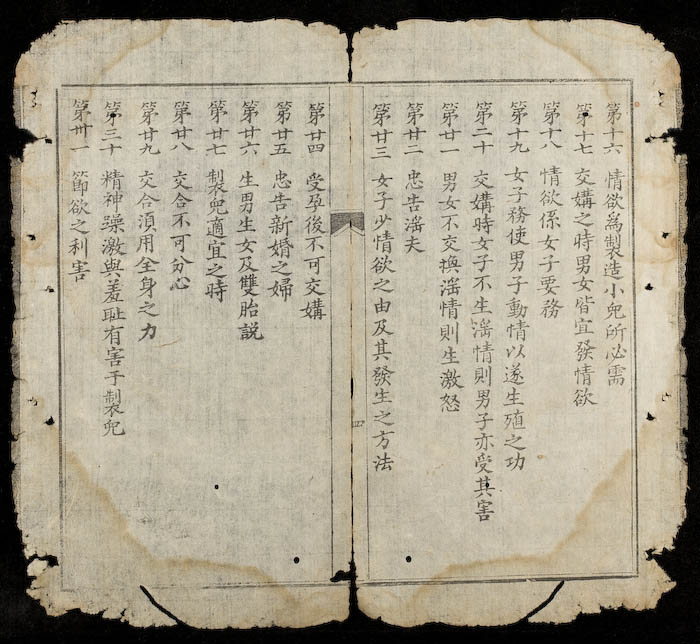 第十六 情欲為製造小兒所必需
第十七 交媾之時男女皆宜發情欲
第十八 情欲係女子要務
第十九 女子務使男子動情以遂生殖之功
第二十 交媾時女子不生滛情則男子亦受其害
第廿一 男女不交換滛情則生激怒
第廿二 忠告滛夫
第廿三 女子少情欲之由及其發生之方法
四
第廿四 受孕後不可交媾
第廿五 忠告新婚之婦
第廿六 生男生女及雙胎説
第廿七 製兒適宜之時
第廿八 交合不可分心
第廿九 交合須用全身之力
第三十 精神躁激與羞耻有害于製兒
第卅一 節欲之利害